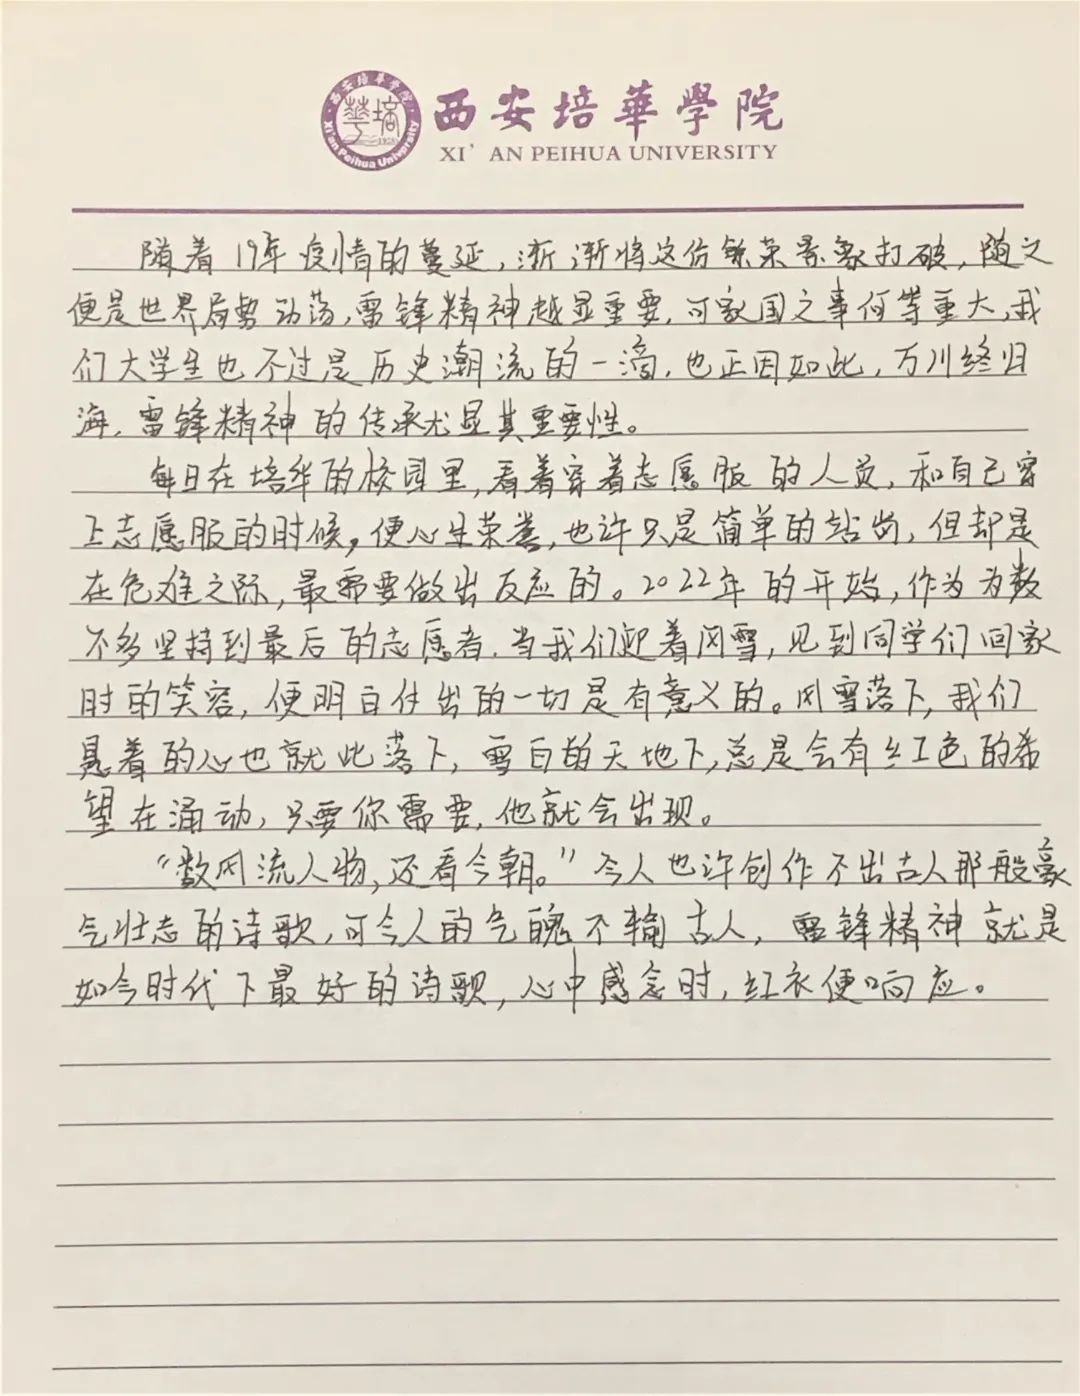 西安培華學院
XI' AN PEIHUA UNIVERSITY
西安培華學院
Xi'an Peihua University
1928
随着19年疫情的蔓延,渐渐将这份繁荣景象打破,随之
便是世界局势动荡,雷锋精神越显重要,可家国之事何等重大,我
们大学生也不过是历史潮流的一滴,也正因如此,万川终归
海,雷锋精神的传承尤显其重要性。
每日在培华的校园里,看着穿着志愿服的人员,和自己穿
上志愿服的时候,便心生荣誉,也许只是简单的站岗,但却是
在危难之际,最需要做出反应的。2022年的开始,作为为数
不多坚持到最后的志愿者,当我们迎着风雪,见到同学们回家
时的笑容,便明白付出的一切是有意义的。风雪落下,我们
悬着的心也就此落下,雪白的天地下,总是会有红色的希
望在涌动,只要你需要,他就会出现。
“数风流人物,还看今朝。”今人也许创作不出古人那般豪
气壮志的诗歌,可今人的气魄不输古人,雷锋精神就是
如今时代下最好的诗歌,心中感念时,红衣便响应。